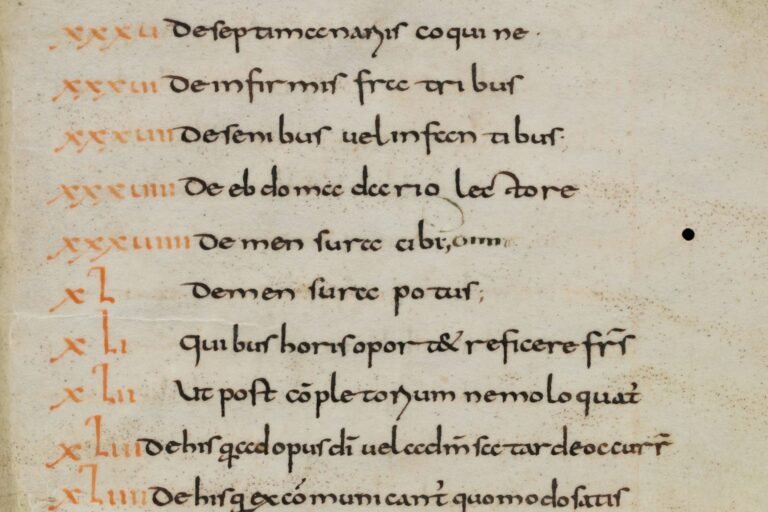 xxxu De septimanariis coquine·
xxxui De infirmis fratribus
xxxuii De senibus uel infantibus·
xxxuiii De ebdomadario lectore
xxxuiiii De mensura cibi
xL De mensura potus;
xLi Quibus horis oportet reficere fr̄s
xLii Ut post cōpletorium nemo loquat̄
xLiii De his q̄ ad opus dī uel ad m̄sa tarde occurr̄
xLiiii De his q̄ excōmunicant̄ quomodo satis